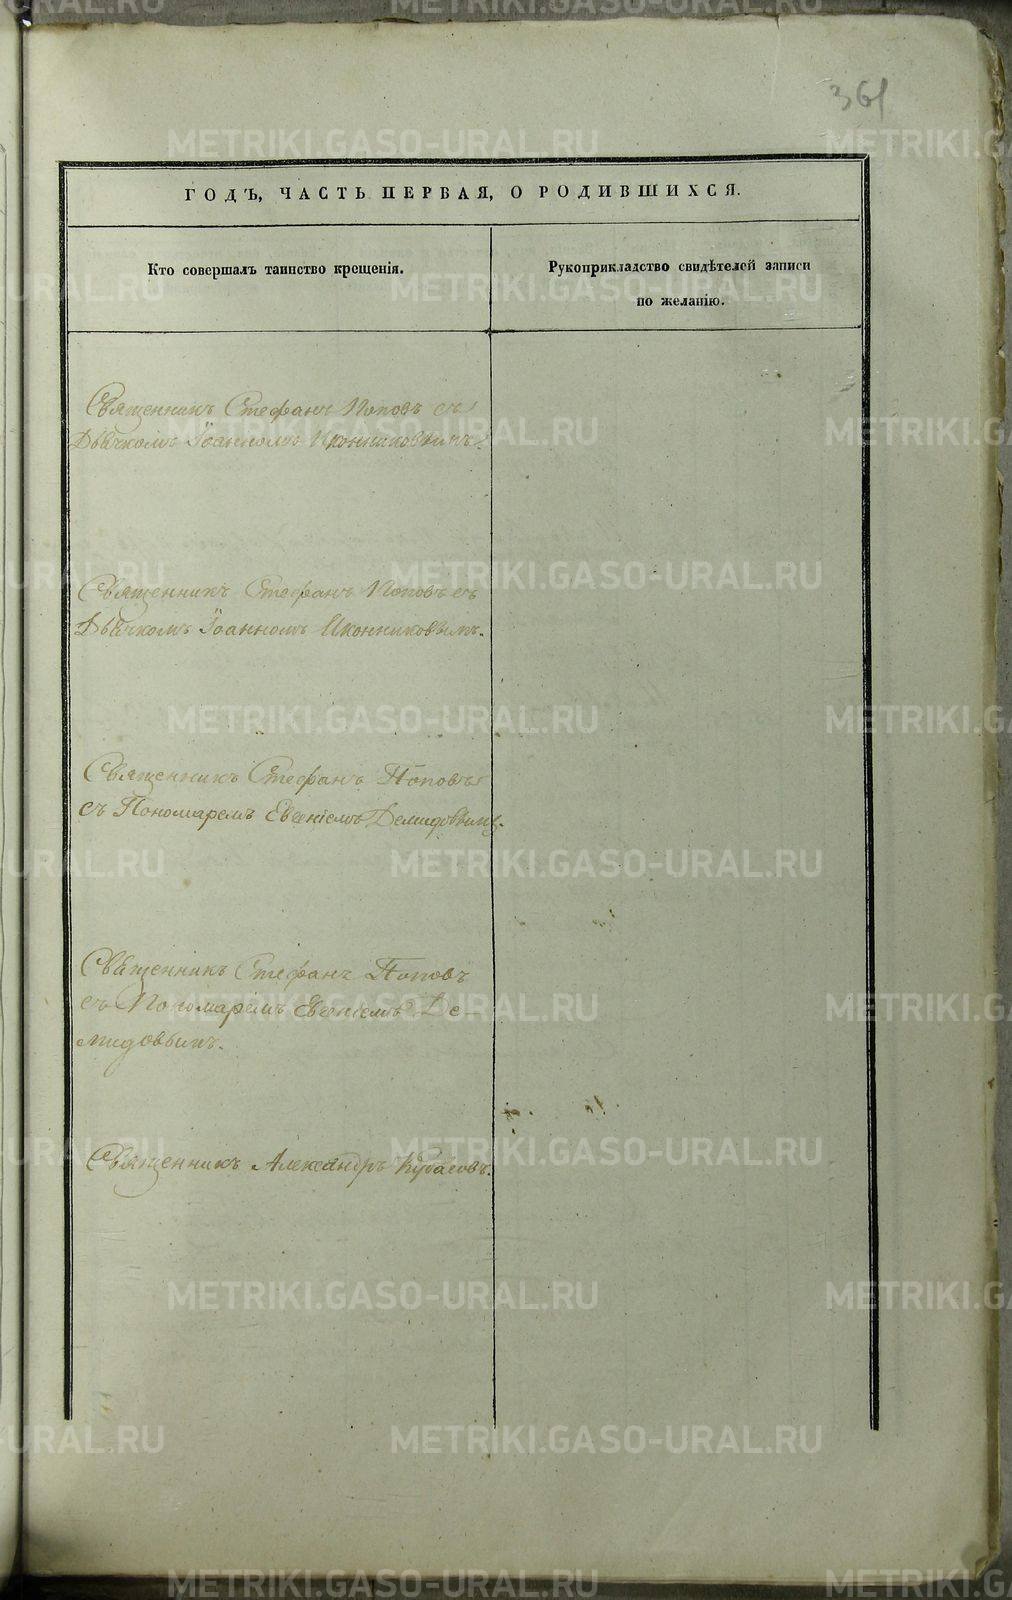 361
ГОДЪ, ЧАСТЬ ПЕРВАЯ, О РОДИВШИХСЯ.
Кто совершалъ таинство крещенія.
Рукоприкладство свидѣтелей записи
по желанію.
Священникъ Стефанъ Поповъ съ
Дьячкомъ Іоанномъ Иконниковымъ.
Священникъ Стефанъ Поповъ съ
Дьячкомъ Іоанномъ Иконниковымъ.
Священникъ Стефанъ Поповъ
съ Пономаремъ Евгеніемъ Демидовымъ.
Священникъ Стефанъ Поповъ
съ Пономаремъ Евгеніемъ Де-
мидовымъ.
Священникъ Александръ Кубасовъ.
METRIKI.GASO-URAL.RU